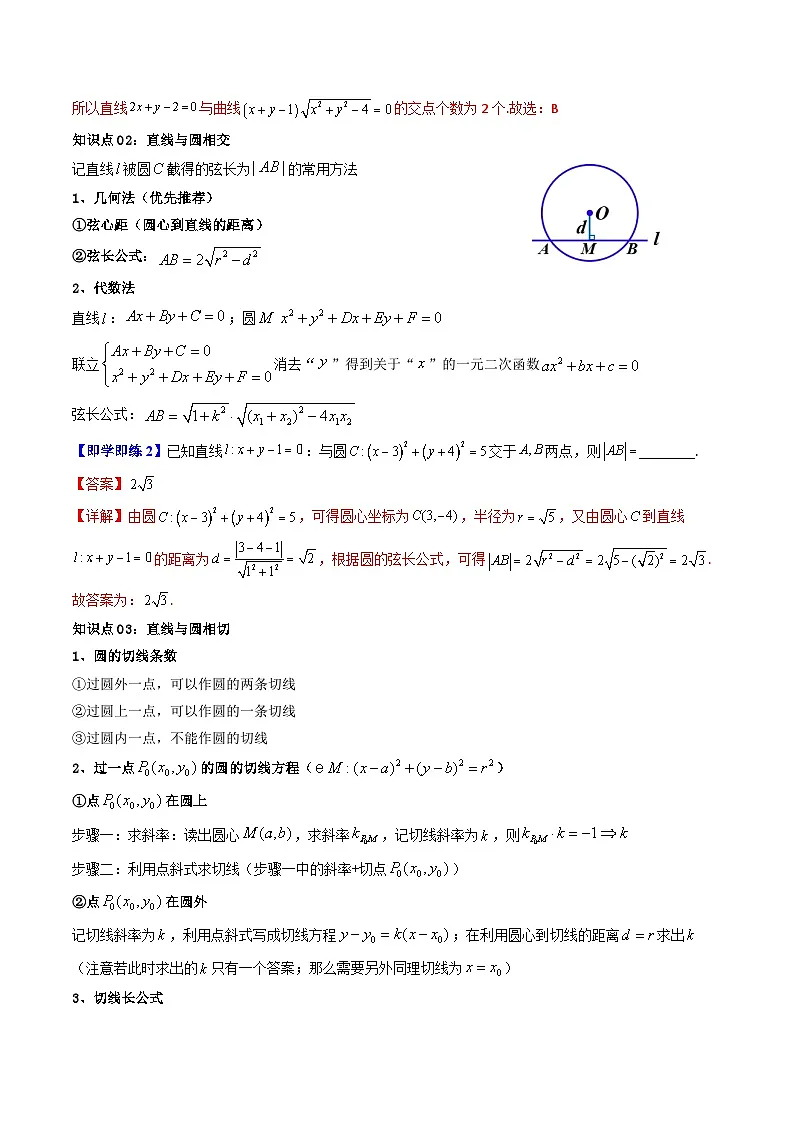 所以直线2x+y−2=0与曲线(x+y−1)√(x²+y²−4)=0的交点个数为2个.故选:B
知识点02:直线与圆相交
记直线l被圆C截得的弦长为|AB|的常用方法
1、几何法(优先推荐)
①弦心距(圆心到直线的距离)
②弦长公式:AB=2√(r²−d²)
O
d
A M B l
2、代数法
直线l:Ax+By+C=0;圆M x²+y²+Dx+Ey+F=0
联立{Ax+By+C=0
x²+y²+Dx+Ey+F=0 消去“y”得到关于“x”的一元二次函数ax²+bx+c=0
弦长公式:AB=√(1+k²)·√((x₁+x₂)²−4x₁x₂)
【即学即练2】已知直线l:x+y−1=0:与圆C:(x−3)²+(y+4)²=5交于A,B两点,则|AB|=________.
【答案】2√3
【详解】由圆C:(x−3)²+(y+4)²=5,可得圆心坐标为C(3,−4),半径为r=√5,又由圆心C到直线
l:x+y−1=0的距离为d=|3−4−1|/√(1²+1²)=√2,根据圆的弦长公式,可得|AB|=2√(r²−d²)=2√(5−(√2)²)=2√3.
故答案为:2√3.
知识点03:直线与圆相切
1、圆的切线条数
①过圆外一点,可以作圆的两条切线
②过圆上一点,可以作圆的一条切线
③过圆内一点,不能作圆的切线
2、过一点P₀(x₀,y₀)的圆的切线方程(ΘM:(x−a)²+(y−b)²=r²)
①点P₀(x₀,y₀)在圆上
步骤一:求斜率:读出圆心M(a,b),求斜率k_{P₀M},记切线斜率为k,则k_{P₀M}·k=−1⇒k
步骤二:利用点斜式求切线(步骤一中的斜率+切点P₀(x₀,y₀))
②点P₀(x₀,y₀)在圆外
记切线斜率为k,利用点斜式写成切线方程y−y₀=k(x−x₀);在利用圆心到切线的距离d=r求出k
(注意若此时求出的k只有一个答案;那么需要另外同理切线为x=x₀)
3、切线长公式